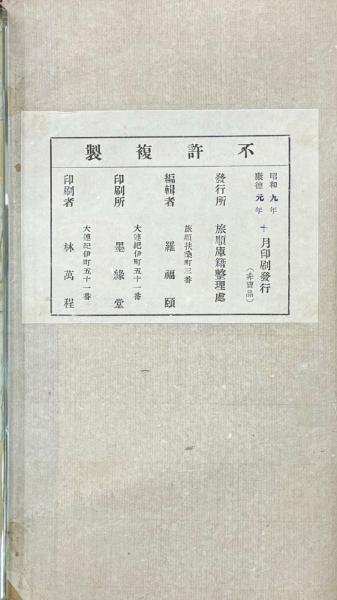 不許複製
昭和九年
康德元年
十月印刷發行
(非賣品)
發行所 旅順庫籍整理處
旅順扶桑町三番
編輯者 羅福頤
大連紀伊町五十一番
印刷所 墨緣堂
大連紀伊町五十一番
印刷者 林萬程